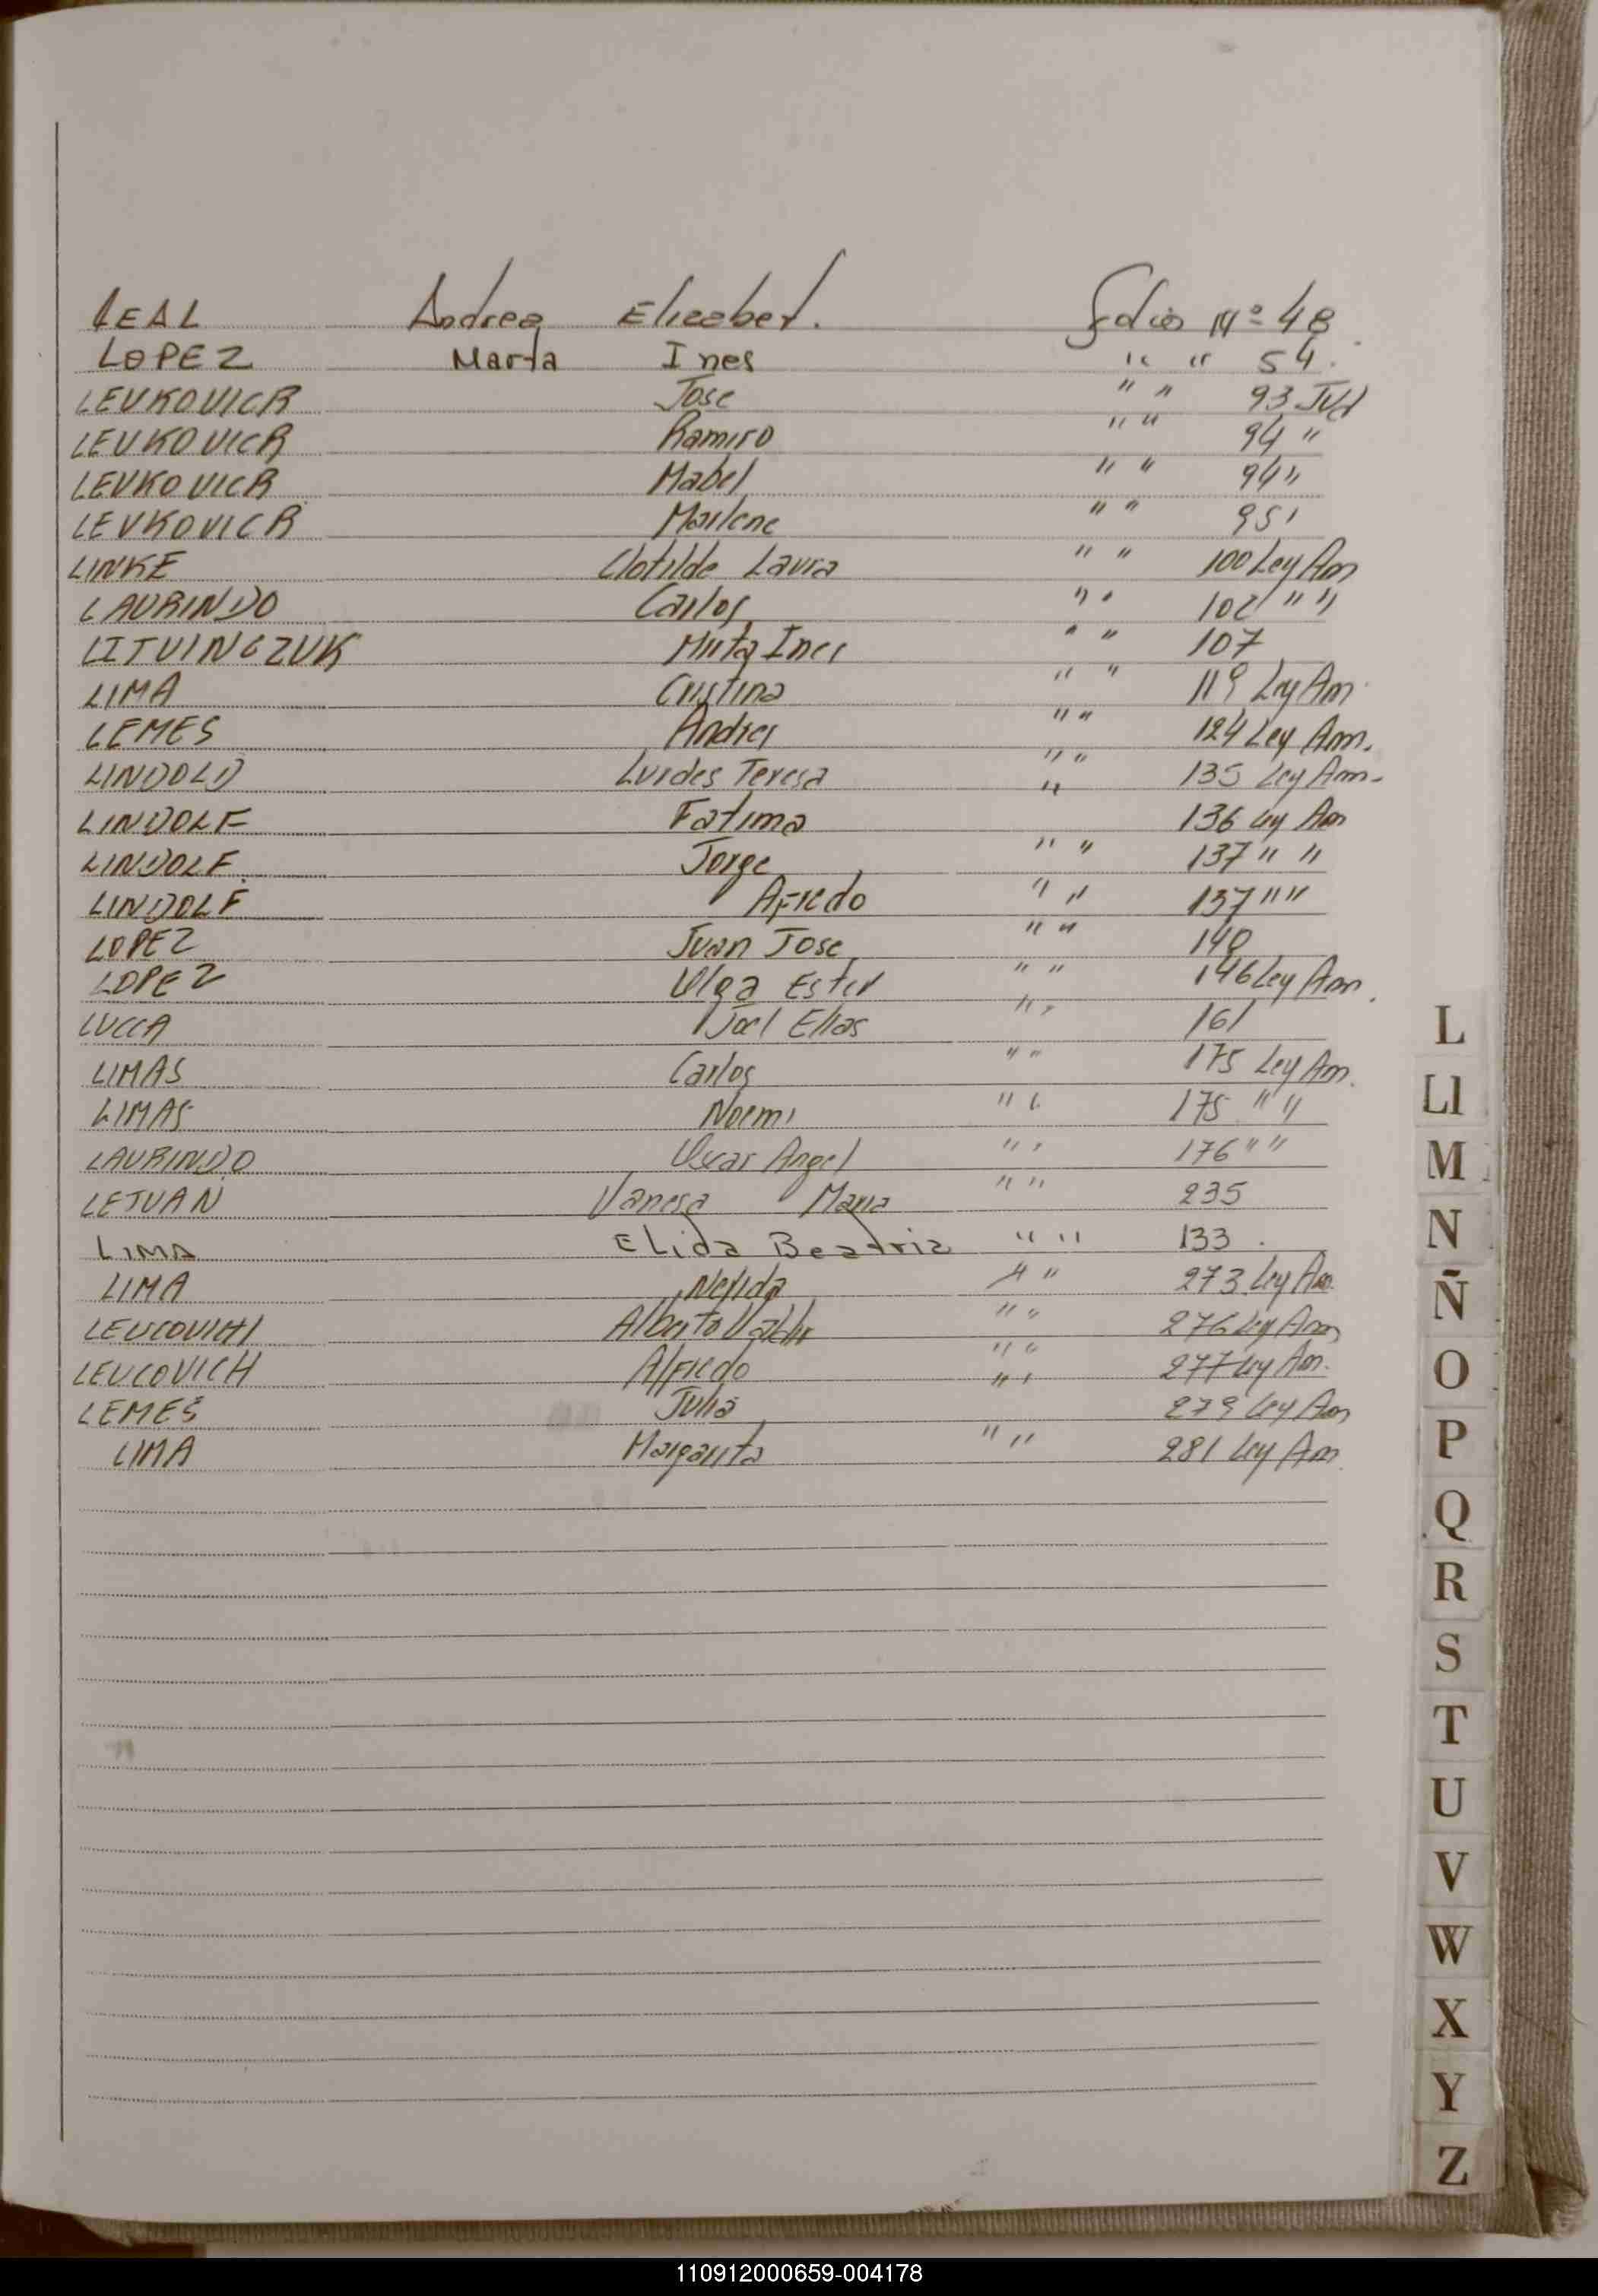 LEAL Andrea Elizabet. Folio Nº 48
LOPEZ Marta Ines " " 54.
LEVKOVICR Jose " " 93 Jud
LEVKOVICR Ramiro " " 94 "
LEVKOVICR Mabel " " 94 "
LEVKOVICR Marlene " " 95 '
LINKE Clotilde Laura " " 100 Ley Am
LAURINDO Carlos " " 102 " "
LITVINCZUK Mirta Ines " " 107
LIMA Cristina " " 119 Ley Am
LEMES Andres " " 124 Ley Am.
LINDOLD Lurdes Teresa " " 135 Ley Am-
LINDOLF Fatima " 136 Ley Am
LINDOLF Jorge " " 137 " "
LINDOLF Afredo " " 137 " "
LOPEZ Juan Jose " " 140
LOPEZ Olga Ester " " 146 Ley Am.
LUCCA Joel Elias " " 161
LIMAS Carlos " " 175 Ley Am.
LIMAS Noemi " " 175 " "
LAURINDO Oscar Angel " " 176 " "
LEJUAN Vanesa Maria " " 235
LIMA Elida Beatriz " " 133.
LIMA Nelida " " 273 Ley Am.
Alberto " " 276 Ley Am
LEUCOVICH Alfredo " " 277 Ley Am.
LEMES Julia " " 279 Ley Am
LIMA Margarita " " 281 Ley Am
L
Ll
M
N
Ñ
O
P
Q
R
S
T
U
V
W
X
Y
Z
110912000659-004178